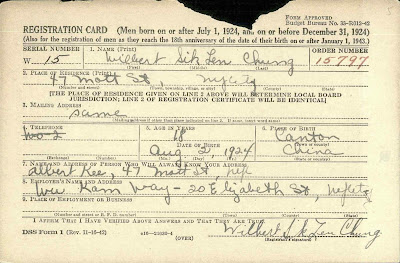 FORM APPROVED
Budget Bureau No. 33-R012-42
REGISTRATION CARD (Men born on or after July 1, 1924, and on or before December 31, 1924)
(Also for the registration of men as they reach the 18th anniversary of the date of their birth on or after January 1, 1943.)
SERIAL NUMBER 1. NAME (Print) ORDER NUMBER
W 15 Wilbert Sik Len Chung 15797
(First) (Middle) (Last)
2. PLACE OF RESIDENCE (Print)
47 Mott St, NYCity
(Number and street) (Town, township, village, or city) (County) (State)
[THE PLACE OF RESIDENCE GIVEN ON LINE 2 ABOVE WILL DETERMINE LOCAL BOARD
JURISDICTION; LINE 2 OF REGISTRATION CERTIFICATE WILL BE IDENTICAL]
3. MAILING ADDRESS
same
[Mailing address if other than place indicated on line 2. If same, insert word same]
4. TELEPHONE 5. AGE IN YEARS 6. PLACE OF BIRTH
18 Canton
DATE OF BIRTH (Town or county)
Aug 2, 1924 China
(Exchange) (Number) (Mo.) (Day) (Yr.) (State or country)
7. NAME AND ADDRESS OF PERSON WHO WILL ALWAYS KNOW YOUR ADDRESS
Albert Kee, 47 Mott St, NYC
8. EMPLOYER'S NAME AND ADDRESS
Wu Kam Way - 20 Elizabeth St, NYCity
9. PLACE OF EMPLOYMENT OR BUSINESS
(Number and street or R. F. D. number) (Town) (County) (State)
I AFFIRM THAT I HAVE VERIFIED ABOVE ANSWERS AND THAT THEY ARE TRUE.
DSS Form 1 (Rev. 11-16-42) (OVER) Wilbert Sik Len Chung
(Registrant's signature)